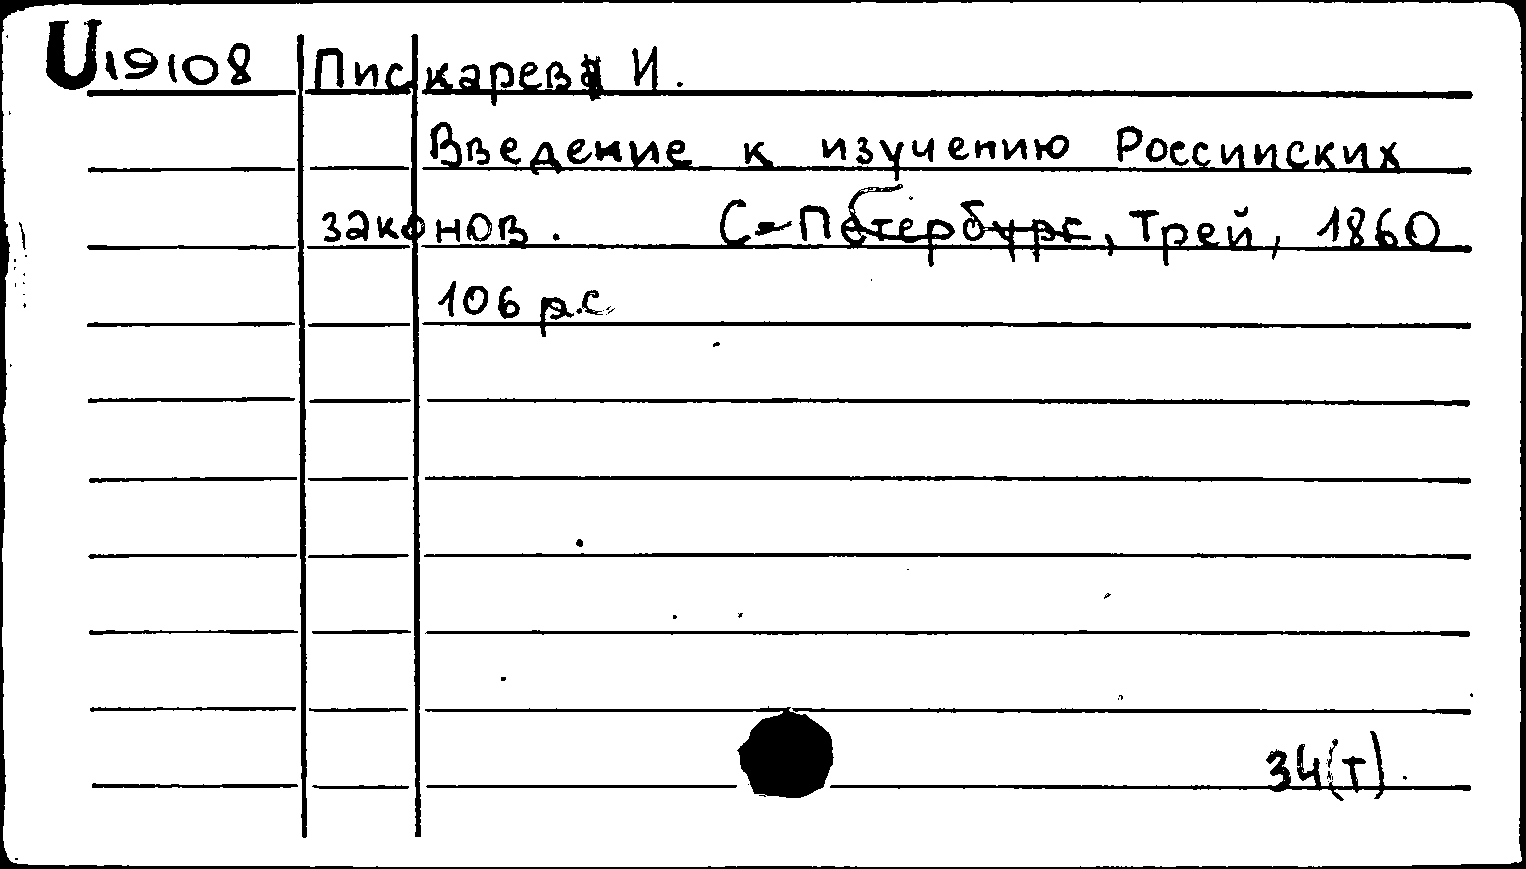 U19108 Пискарев И.
Введение к изучению Россииских
законов. С-Петербург, Трей, 1860
106 p.c
34(т).